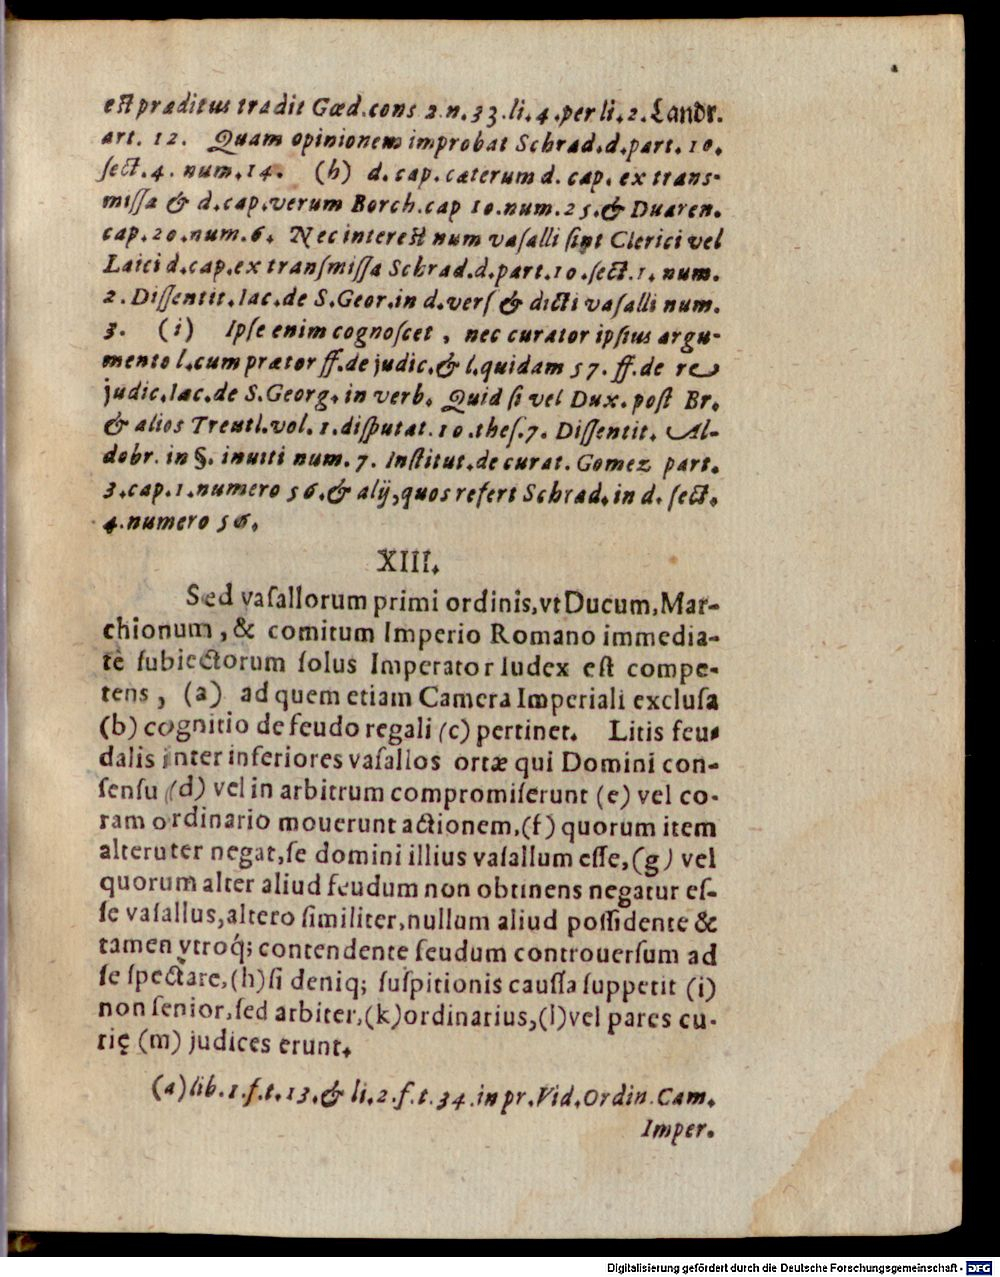 est præditus tradit Gœd.cons 2.n.33.li.4.per li.2.Landr.
art. 12. Quam opinionem improbat Schrad.d.part.10.
ſect.4. num.14. (h) d. cap. cæterum d. cap. ex trans-
miſſa & d.cap.verum Borch.cap 10.num.25.& Duaren.
cap.20.num.6. Nec interest num vaſalli ſint Clerici vel
Laici d.cap.ex tranſmiſſa Schrad.d.part.10.ſect.1. num.
2. Diſſentit.Iac.de S.Geor.in d.verſ & dicti vaſalli num.
3. (i) Ipſe enim cognoſcet , nec curator ipſius argu-
mento l.cum prætor ff.de judic.& l.quidam 57. ff.de re
judic.Iac.de S.Georg.in verb. Quid ſi vel Dux.poſt Br.
& alios Treutl.vol.1.diſputat.10.theſ.7. Diſſentit. Al-
dobr. in §. inuiti num. 7. Inſtitut.de curat. Gomez part.
3.cap.1.numero 56.& alij,quos refert Schrad.in d. ſect.
4.numero 56.
XIII.
Sed vaſallorum primi ordinis,vt Ducum,Mar-
chionum , & comitum Imperio Romano immedia-
tè ſubiectorum ſolus Imperator Iudex eſt compe-
tens , (a) ad quem etiam Camera Imperiali excluſa
(b) cognitio de feudo regali (c) pertinet. Litis feu-
dalis inter inferiores vaſallos ortæ qui Domini con-
ſenſu (d) vel in arbitrum compromiſerunt (e) vel co-
ram ordinario mouerunt actionem,(f) quorum item
alteruter negat,ſe domini illius vaſallum eſſe,(g) vel
quorum alter aliud feudum non obtinens negatur eſ-
ſe vaſallus,altero ſimiliter,nullum aliud poſſidente &
tamen vtroq́; contendente feudum controuerſum ad
ſe ſpectare,(h)ſi deniq; ſuſpitionis cauſſa ſuppetit (i)
non ſenior,ſed arbiter,(k)ordinarius,(l)vel pares cu-
rię (m) judices erunt.
(a) lib.1.f.t.13.& li.2.f.t.34.in pr.Vid.Ordin.Cam.
Imper.
Digitalisierung gefördert durch die Deutsche Forschungsgemeinschaft - DFG